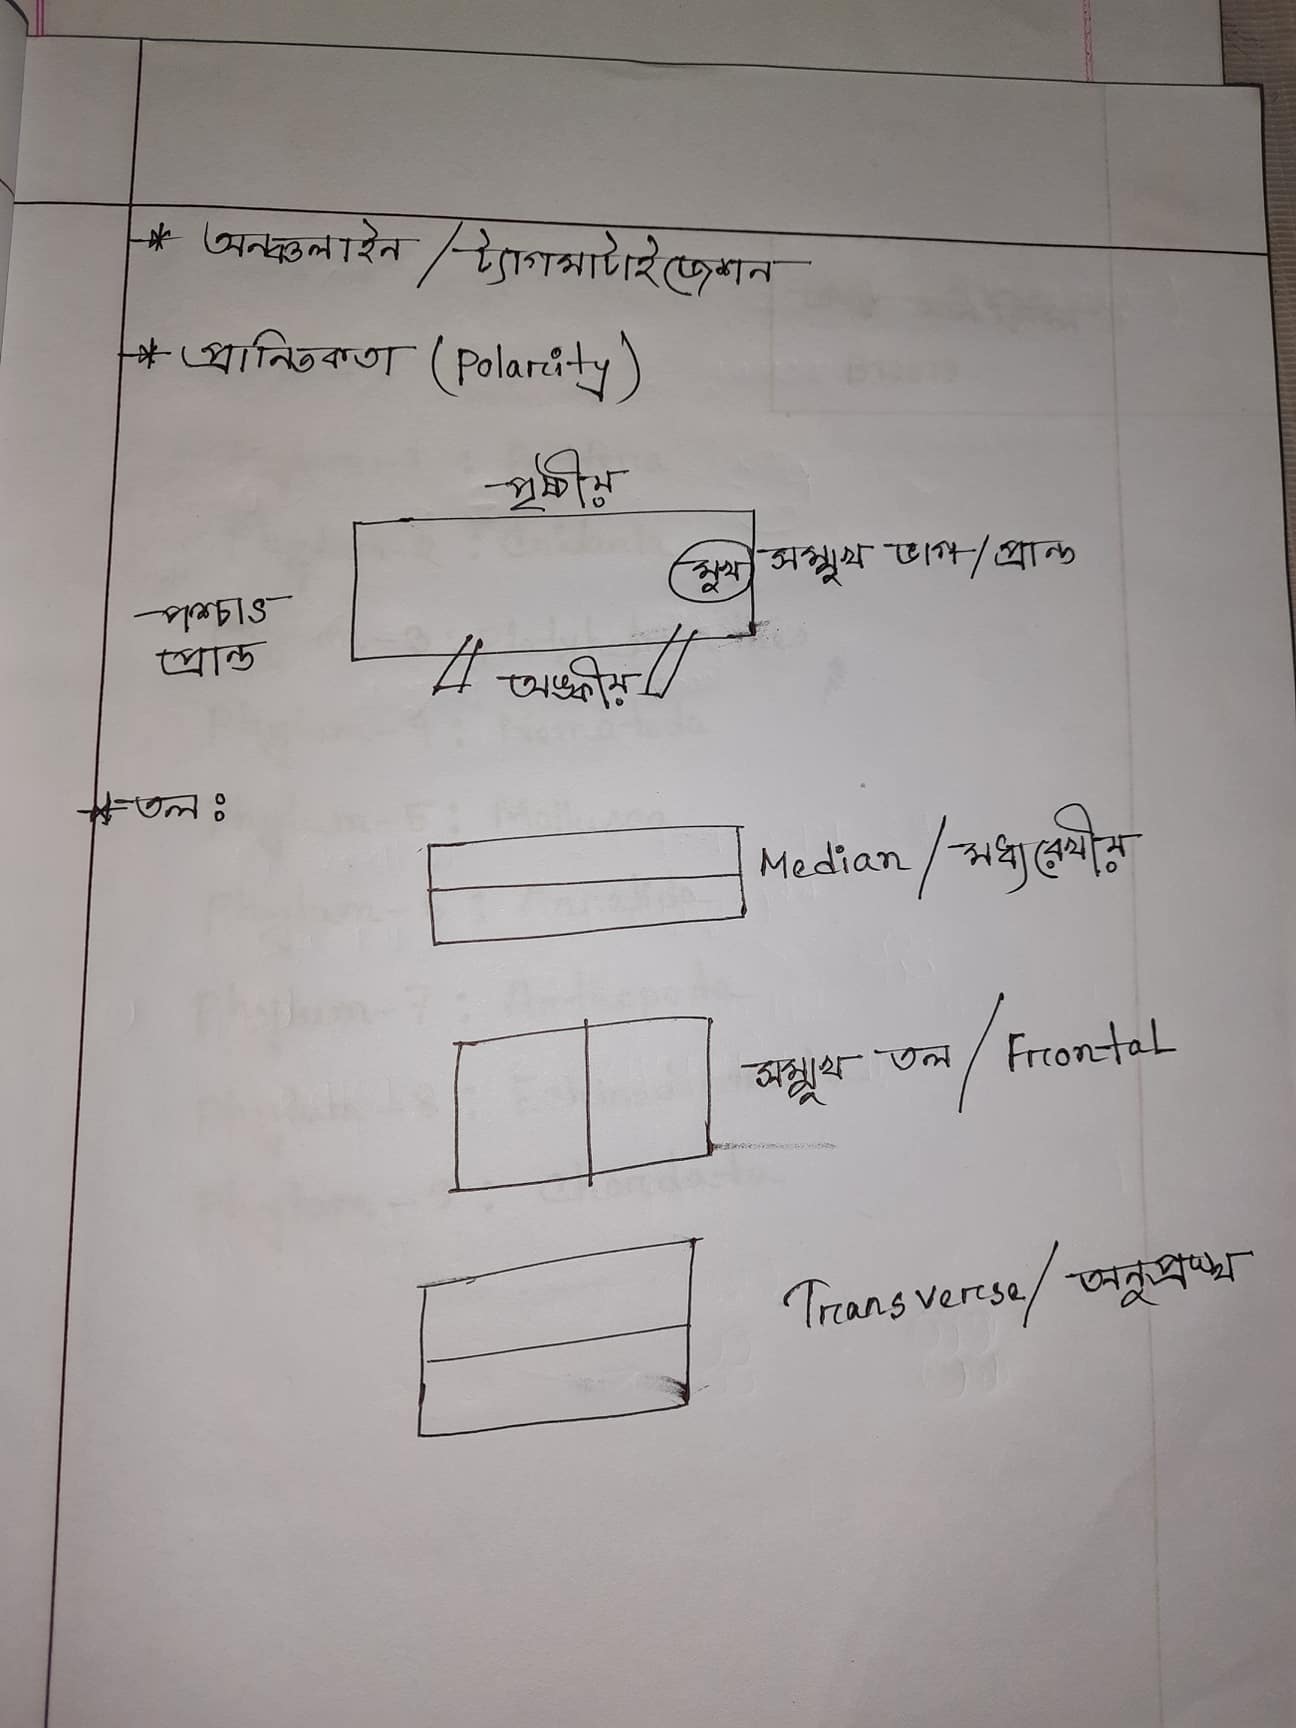 * অনঞ্চলাইন / ট্যাগমাটাইজেশন
* প্রান্তিকতা (Polarity)
পৃষ্ঠীয়
মুখ
সম্মুখ ভাগ/প্রান্ত
পশ্চাৎ
প্রান্ত
অঙ্কীয়
* তলঃ
Median / মধ্যরেখীয়
সম্মুখ তল / Frontal
Transverse / অনুপ্রস্থ